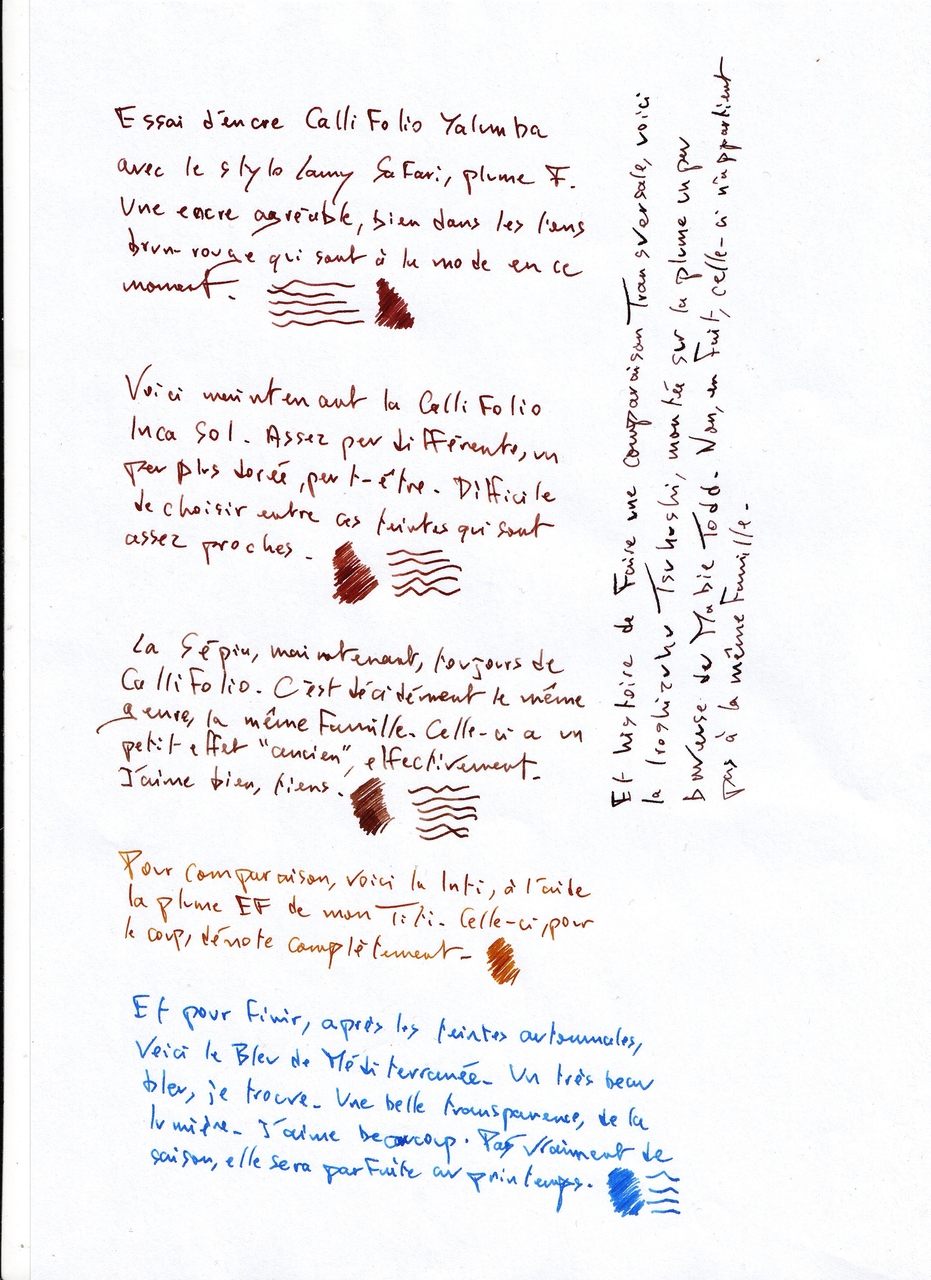 Essai d'encre Calli Folio Yalumba
avec le stylo Lamy Safari, plume F.
Une encre agréable, bien dans les liens
brun-rouge qui sont à la mode en ce
moment.
Voici maintenant la Calli Folio
Inca Sol. Assez peu différente, un
peu plus dorée, peut-être. Difficile
de choisir entre ces teintes qui sont
assez proches.
La Sépia, maintenant, toujours de
Calli Folio. C'est décidément le même
genre, la même famille. Celle-ci a un
petit effet "ancien", effectivement.
J'aime bien, tiens.
Pour comparaison, voici la Inti, à l'aide
la plume EF de mon Titi. Celle-ci, pour
le coup, dénote complètement.
Et pour finir, après les teintes automnales,
Voici le Bleu de Méditerranée. Un très beau
bleu, je trouve. Une belle transparence, de la
lumière. J'aime beaucoup. Pas vraiment de
saison, elle sera parfaite au printemps.
Et histoire de faire une comparaison transversale, voici
la Iroshizuku Tsukushi, montée sur la plume un peu
baveuse du Mabie Todd. Non, en fait, celle-ci n'appartient
pas à la même famille.